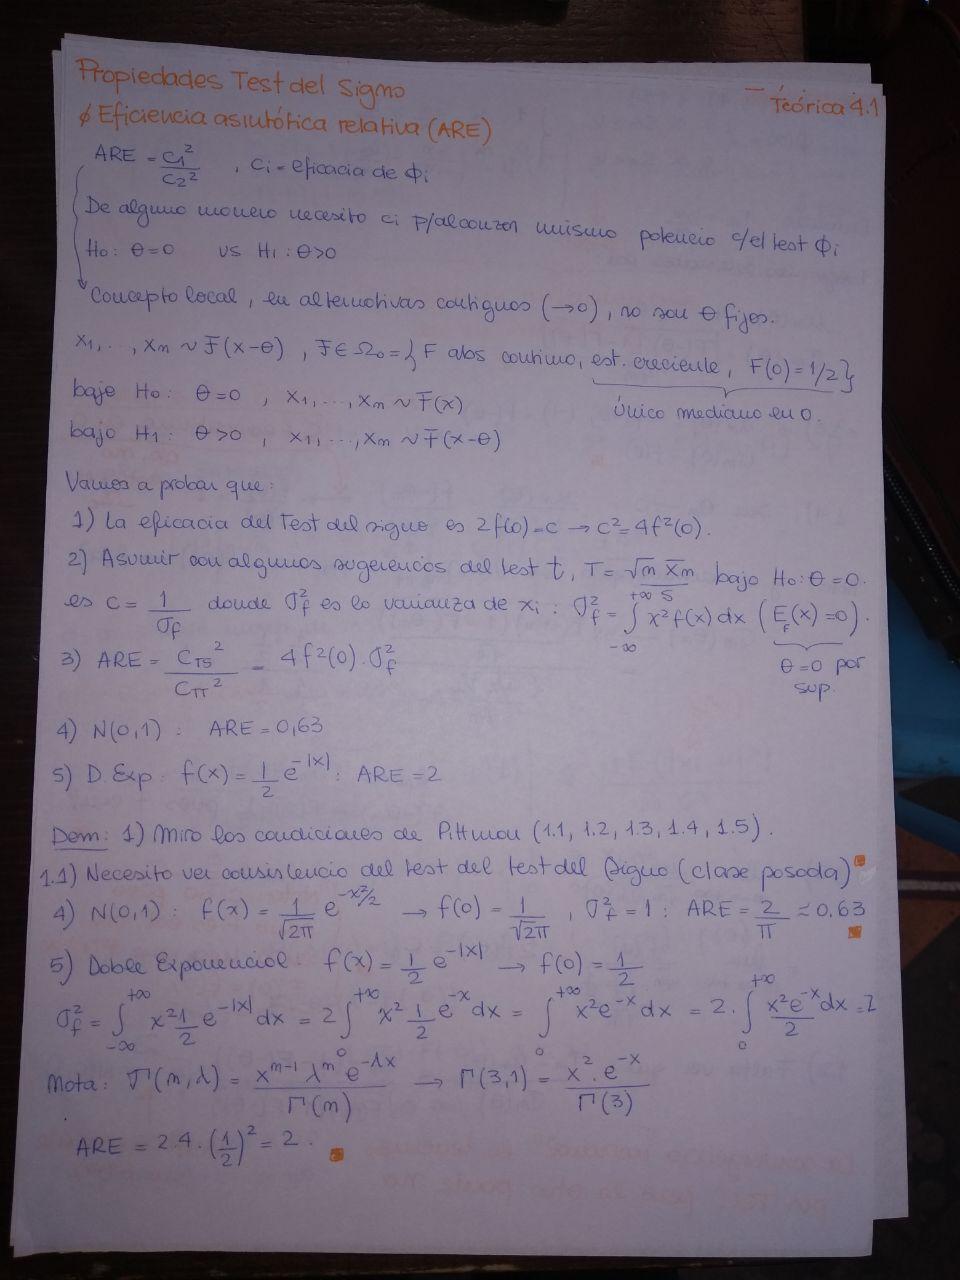 Propiedades Test del Signo
Teórica 4.1
∮ Eficiencia asintótica relativa (ARE)
ARE = c₁²/c₂² , ci = eficacia de ϕi
De alguna manera necesito ci p/alcanzar misma potencia c/el test ϕi
H0: θ=0 vs H1: θ>0
Concepto local, en alternativas contiguas (→0), no son θ fijos.
x1,..., xn ~ F(x-θ) , F∈Ω0 = { F abs continua, est. creciente, F(0)=1/2}
única mediana en 0.
bajo H0: θ=0 , x1,...,xn ~ F(x)
bajo H1: θ>0 , x1,...,xn ~ F(x-θ)
Vamos a probar que:
1) La eficacia del Test del signo es 2f(0)=c → c²=4f²(0).
2) Asumir con algunas sugerencias del test t, T = √n x̄n / S bajo H0: θ=0.
es c = 1/σf donde σ²f es la varianza de xi : σ²f = ∫_{-∞}^{+∞} x² f(x) dx (E_F(x)=0).
θ=0 por sup.
3) ARE = C_TS² / C_TT² = 4f²(0).σ²f
4) N(0,1) : ARE = 0,63
5) D Exp: f(x) = 1/2 e^{-|x|} : ARE = 2
Dem: 1) Miro las condiciones de Pittman (1.1, 1.2, 1.3, 1.4, 1.5).
1.1) Necesito ver consistencia del test del test del signo (clase pasada)
4) N(0,1) : f(x) = 1/√2π e^{-x²/2} → f(0) = 1/√2π , σ²f = 1 : ARE = 2/π ≈ 0.63
5) Doble Exponencial: f(x) = 1/2 e^{-|x|} → f(0) = 1/2
σ²f = ∫_{-∞}^{+∞} x² 1/2 e^{-|x|} dx = 2∫_0^{+∞} x² 1/2 e^{-x} dx = ∫_0^{+∞} x² e^{-x} dx = 2.∫_0^{+∞} x² e^{-x}/2 dx = 2
Nota: Γ(n,λ) = x^{n-1} λ^n e^{-λx} / Γ(n) → Γ(3,1) = x². e^{-x} / Γ(3)
ARE = 2 4 . (1/2)² = 2 .